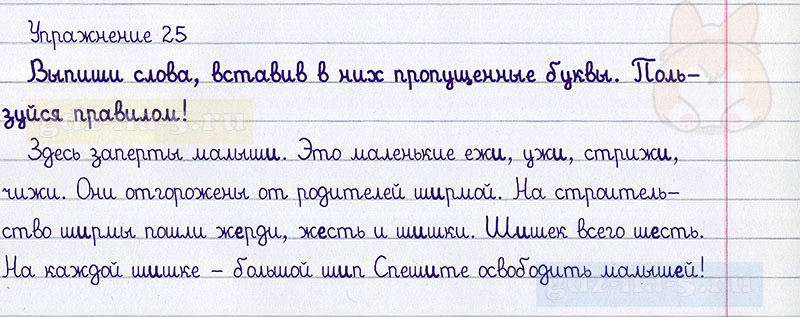 Упражнение 25
Выпиши слова, вставив в них пропущенные буквы. Поль-
зуйся правилом!
Здесь заперты малыши. Это маленькие ежи, ужи, стрижи,
чижи. Они отгорожены от родителей ширмой. На строитель-
ство ширмы пошли жерди, жесть и шишки. Шишек всего шесть.
На каждой шишке – большой шип Спешите освободить малышей!